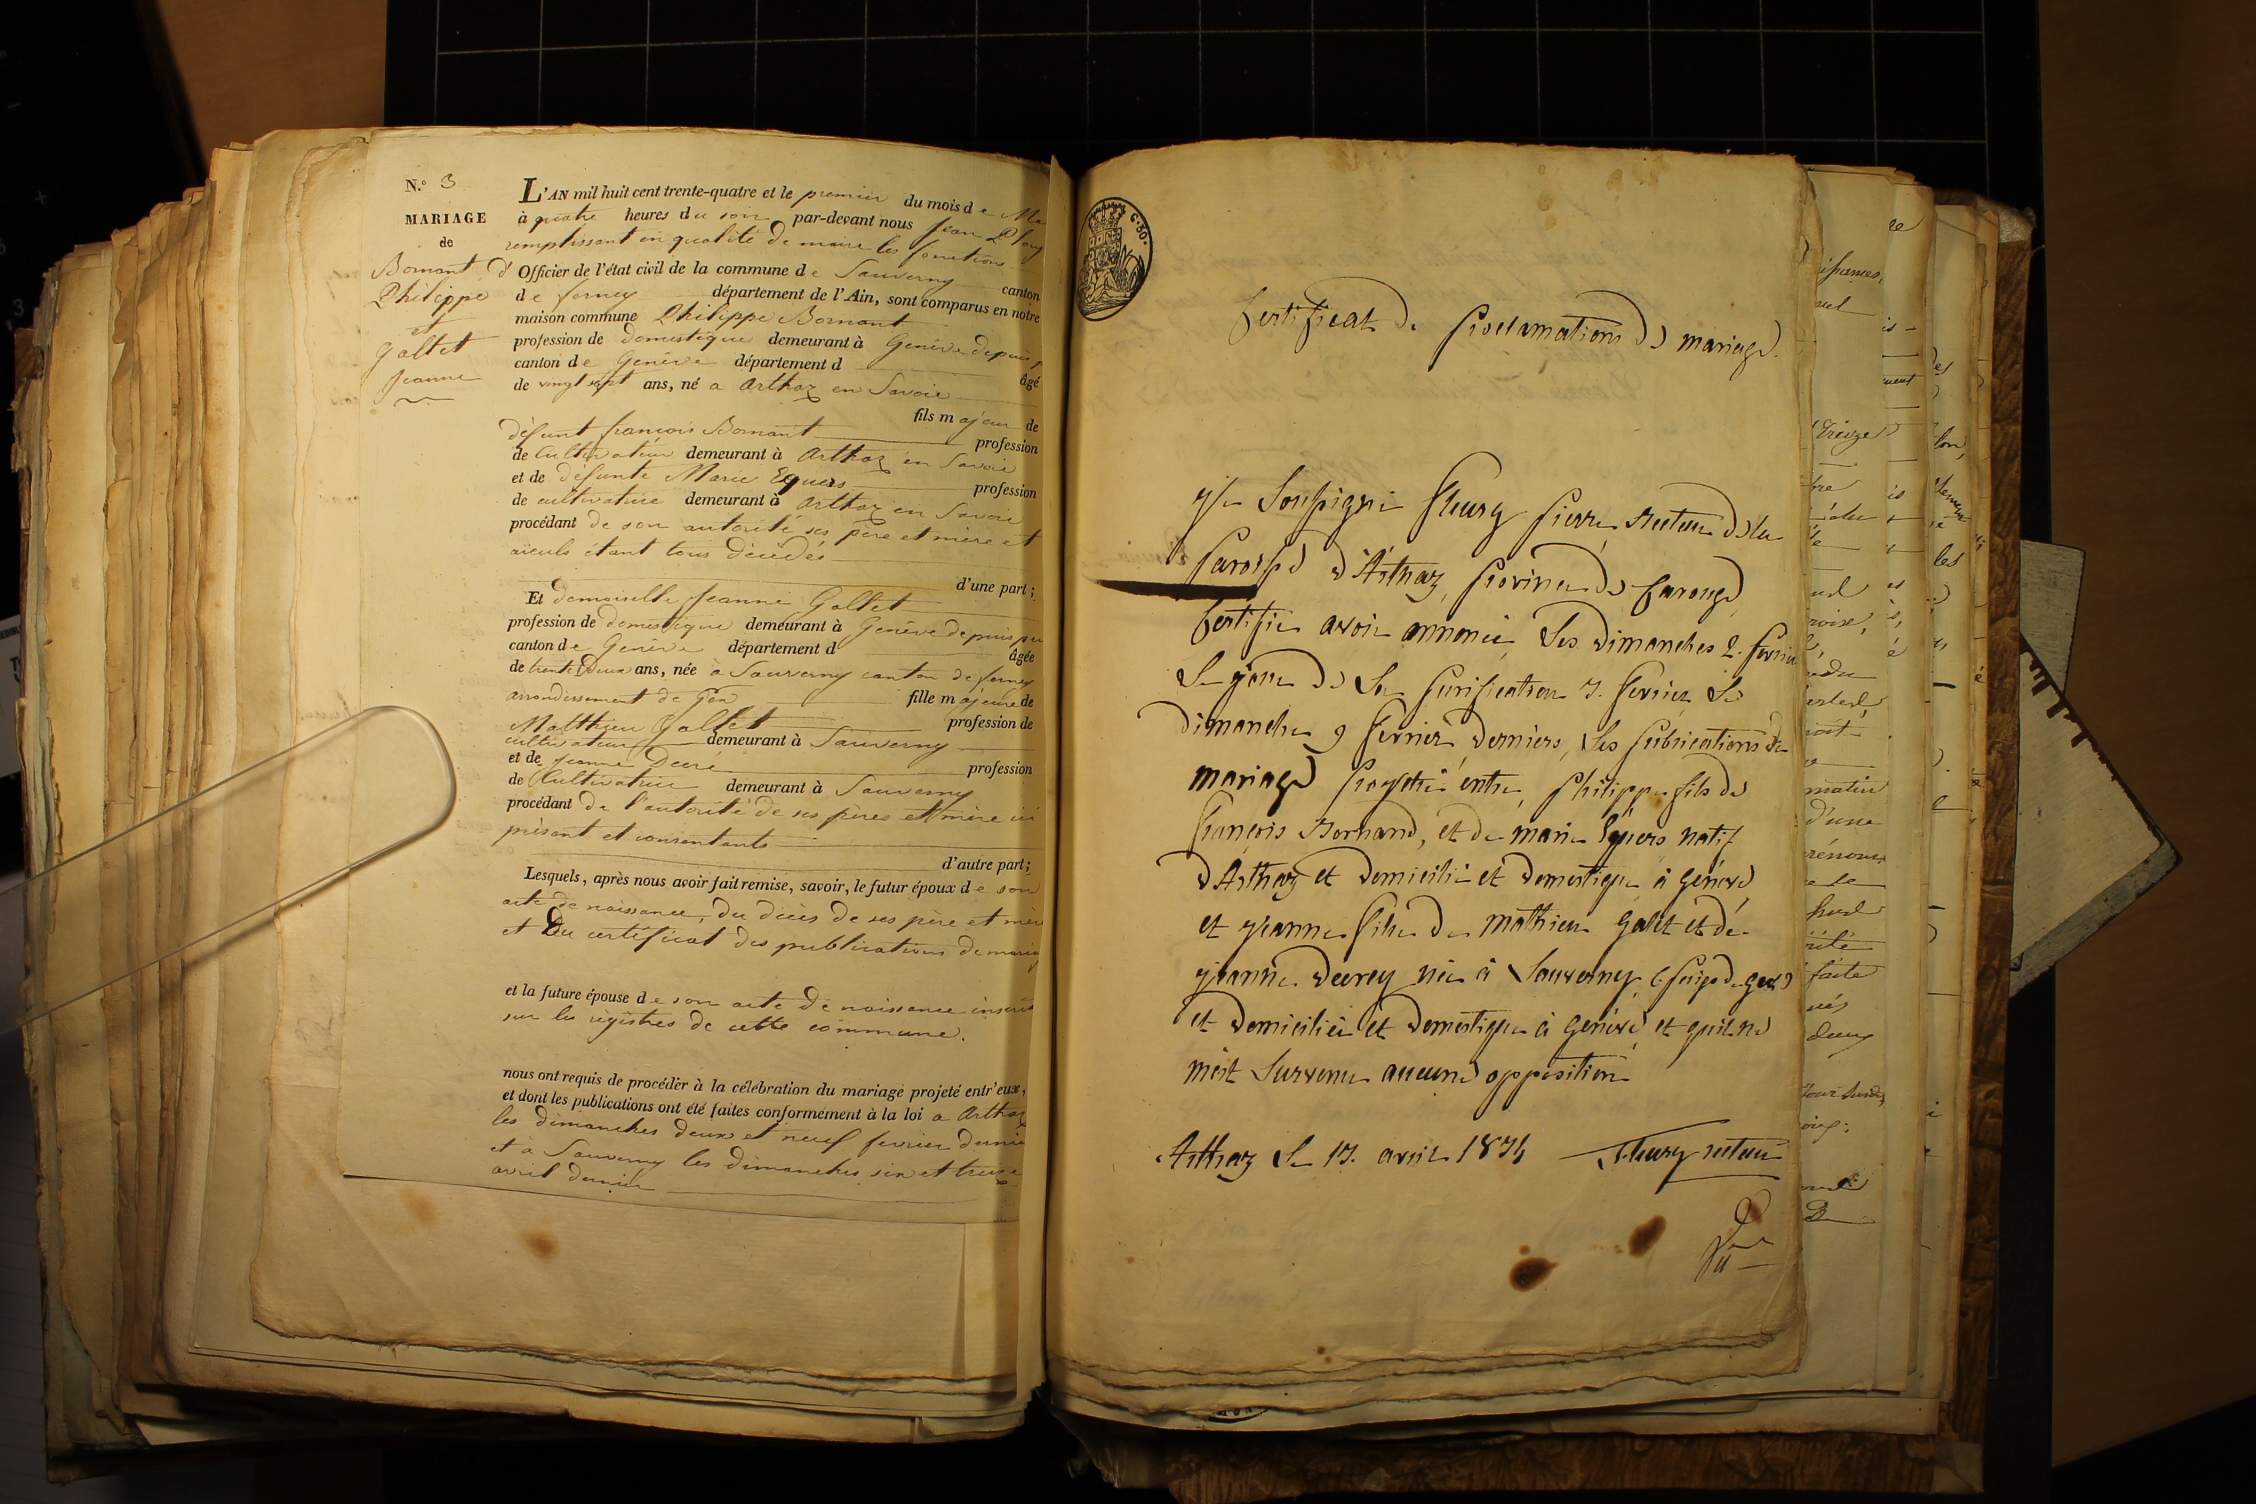 N.o 3
MARIAGE
de
Bornant
Philippe
et
Gallet
Jeanne
L'AN mil huit cent trente-quatre et le premier du mois de
à quatre heures du soir par-devant nous Jean
remplissant en qualité de maire les fonctions
d' Officier de l'état civil de la commune de Sauverny canton
de ferney département de l'Ain, sont comparus en notre
maison commune Philippe Bornant
profession de domestique demeurant à Genève depuis
canton de Genève département d
âgé
de vingt sept ans, né a Arthaz en Savoie
fils majeur de
défunt francois Bornant profession
de Cultivateur demeurant à Arthaz en Savoie
et de défunte Marie Equers profession
de cultivatrice demeurant à Arthaz en Savoie
procédant de son autorité ses père et mère et
aieuls étant tous décédés
d'une part;
Et demoiselle Jeanne Gallet
profession de domestique demeurant à Genève depuis
canton de Genève département d
âgée
de trente deux ans, née à Sauverny canton de ferney
arrondissement de Gex fille majeure de
Matthieu Gallet profession de
cultivateur demeurant à Sauverny
et de Jeanne Decré profession
de Cultivatrice demeurant à Sauverny
procédant de l'autorité de ses pères et mère ici
présent et consentants
d'autre part;
Lesquels, après nous avoir fait remise, savoir, le futur époux de son
acte de naissance, du décès de ses père et
et Du certificat des publications de
et la future épouse de son acte de naissance
sur les registres de cette commune.
nous ont requis de procéder à la célébration du mariage projeté entr'eux,
et dont les publications ont été faites conformément à la loi a Arthaz
les dimanches deux et neuf fevrier
et à Sauverny les dimanches six et treize
avril dernier
C. 30.
Certificat de proclamations de mariage.
Je Soussigné Fleury pierre Recteur de la
paroisse d'Arthaz, province de Carouge
Certifie avoir annoncé Les dimanches 2. fevrier
Le jour de La purification 3. fevrier Le
dimanche 9 fevrier derniers, Les publications de
mariage projetté entre philippe fils de
françois Bornand, et de marie Equers natif
d'Arthaz et domicilié et domestique à genève
et jeanne fille de mathieu galet et de
jeanne decrey née à Sauverny (païs de gex)
et domiciliée et domestique à genève et quil ne
m'est Survenu aucune opposition
Arthaz Le 13. avril 1834 Fleury recteur